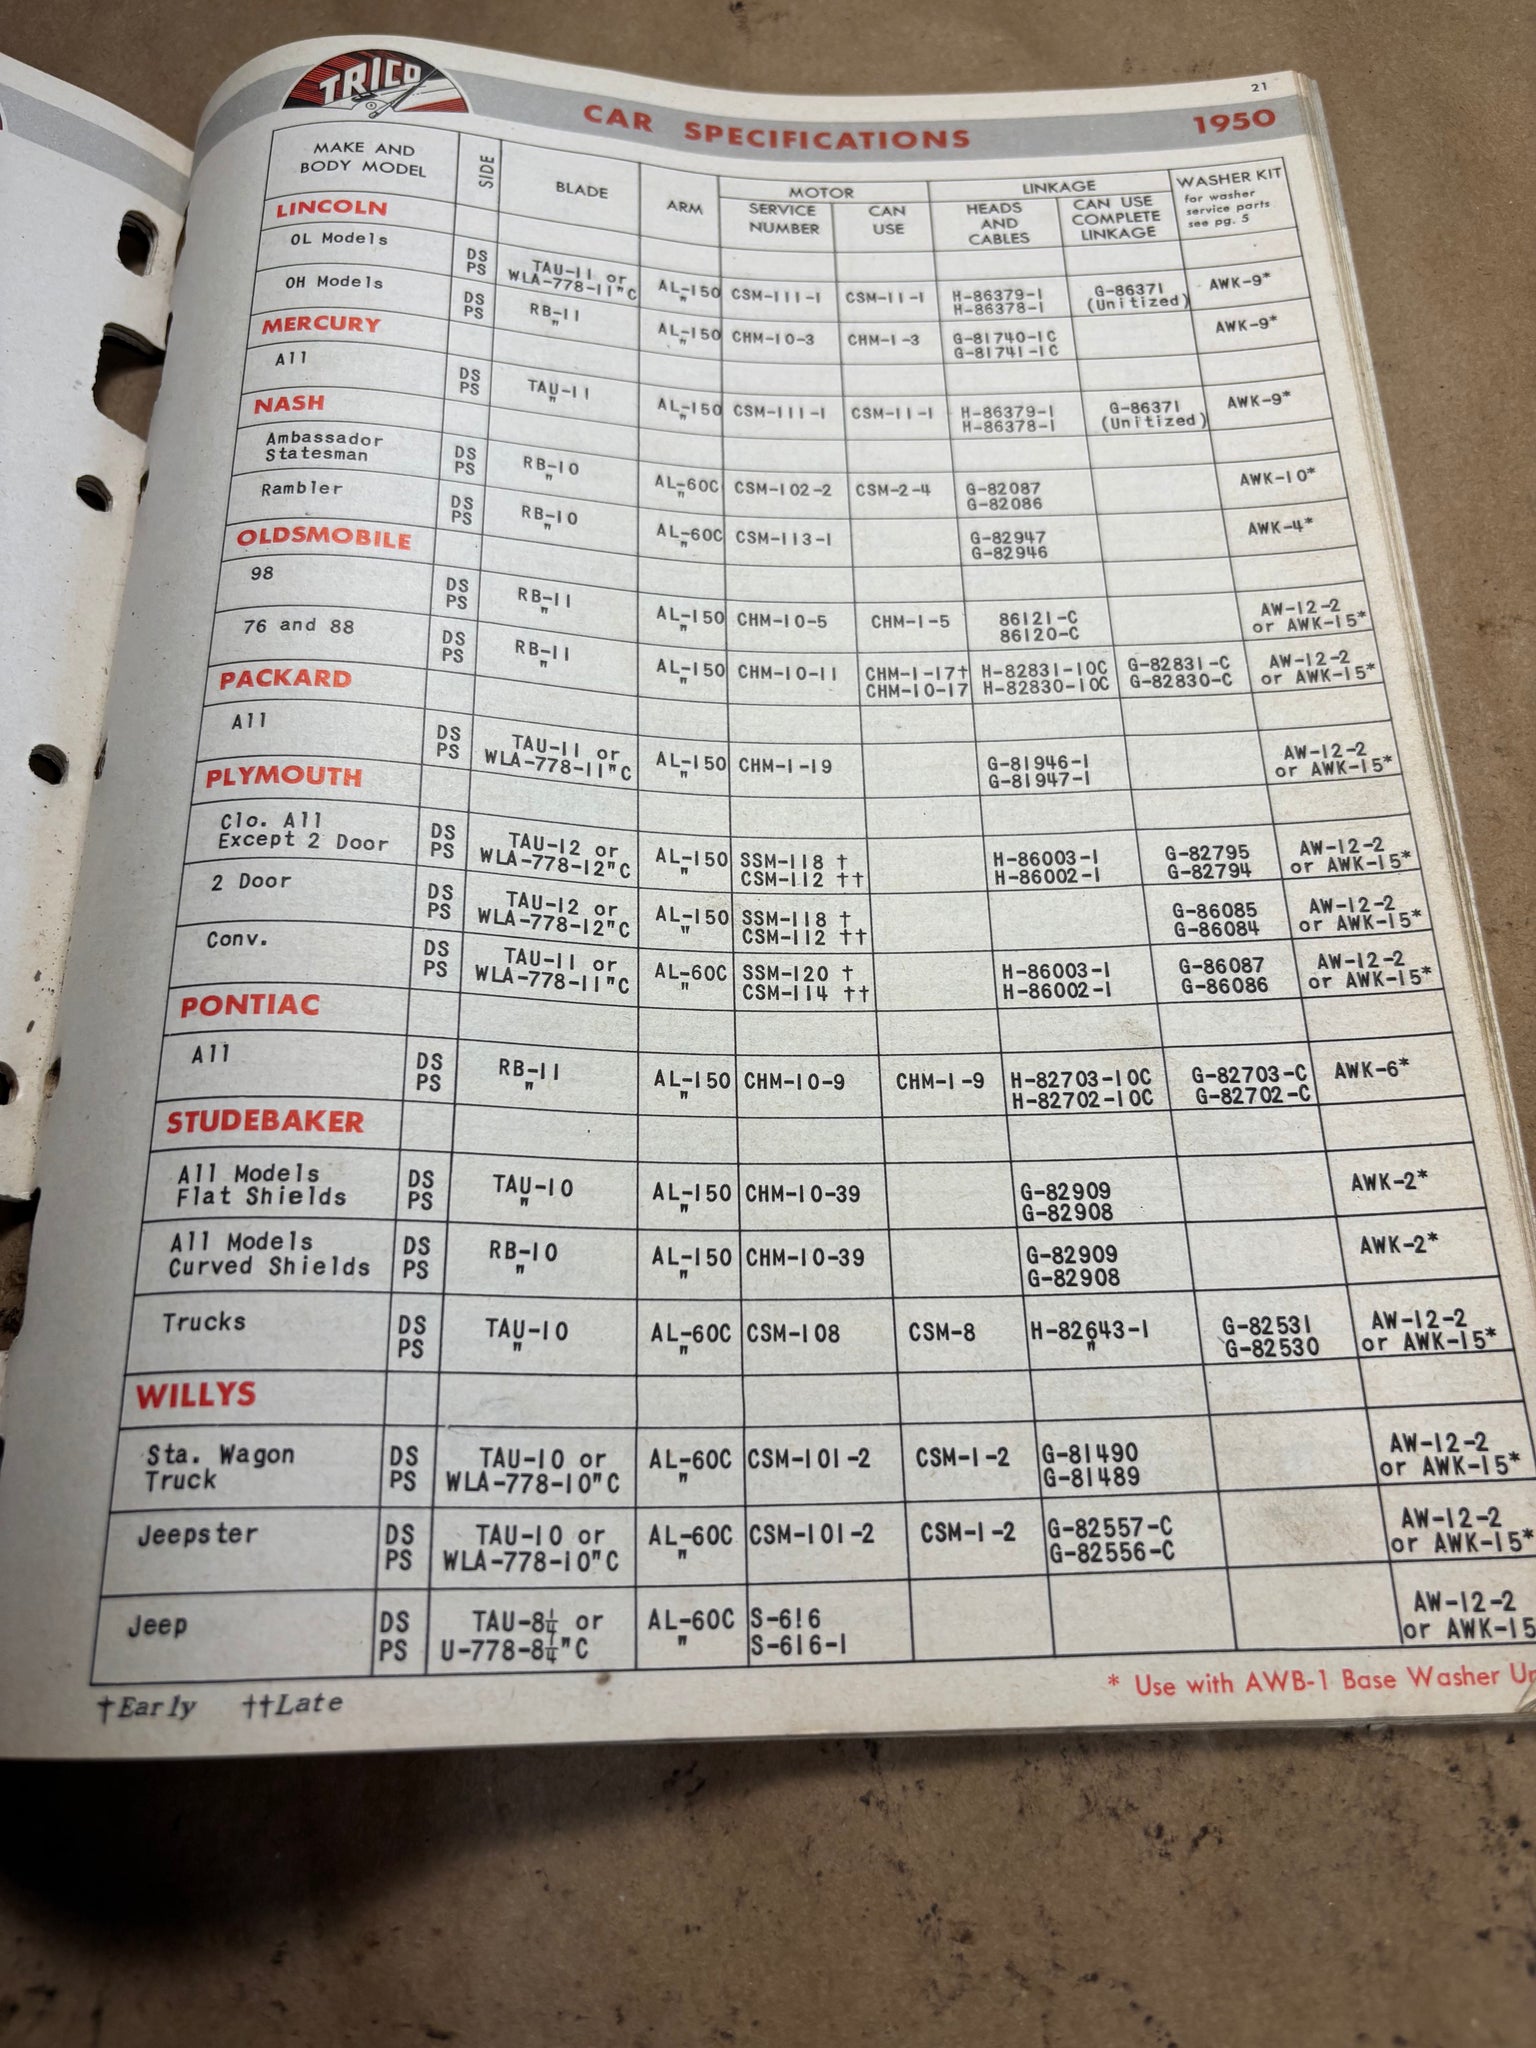 TRICO
21
CAR SPECIFICATIONS
1950
MAKE AND
BODY MODEL
SIDE
BLADE
ARM
MOTOR
SERVICE
NUMBER
CAN
USE
LINKAGE
HEADS
AND
CABLES
CAN USE
COMPLETE
LINKAGE
WASHER KIT
for washer
service parts
see pg. 5
LINCOLN
OL Models DS TAU-11 or AL-150 CSM-111-1 CSM-11-1 H-86379-1 G-86371 AWK-9*
PS WLA-778-11"C " H-86378-1 (Unitized)
OH Models DS RB-11 AL-150 CHM-10-3 CHM-1-3 G-81740-1C AWK-9*
PS " " G-81741-1C
MERCURY
All DS TAU-11 AL-150 CSM-111-1 CSM-11-1 H-86379-1 G-86371 AWK-9*
PS " " H-86378-1 (Unitized)
NASH
Ambassador DS RB-10 AL-60C CSM-102-2 CSM-2-4 G-82087 AWK-10*
Statesman PS " " G-82086
Rambler DS RB-10 AL-60C CSM-113-1 G-82947 AWK-4*
PS " " G-82946
OLDSMOBILE
98 DS RB-11 AL-150 CHM-10-5 CHM-1-5 86121-C AW-12-2
PS " " 86120-C or AWK-15*
76 and 88 DS RB-11 AL-150 CHM-10-11 CHM-1-17† H-82831-10C G-82831-C AW-12-2
PS " " CHM-10-17 H-82830-10C G-82830-C or AWK-15*
PACKARD
All DS TAU-11 or AL-150 CHM-1-19 G-81946-1 AW-12-2
PS WLA-778-11"C " G-81947-1 or AWK-15*
PLYMOUTH
Clo. All DS TAU-12 or AL-150 SSM-118 † H-86003-1 G-82795 AW-12-2
Except 2 Door PS WLA-778-12"C " CSM-112 †† H-86002-1 G-82794 or AWK-15*
2 Door DS TAU-12 or AL-150 SSM-118 † G-86085 AW-12-2
PS WLA-778-12"C " CSM-112 †† G-86084 or AWK-15*
Conv. DS TAU-11 or AL-60C SSM-120 † H-86003-1 G-86087 AW-12-2
PS WLA-778-11"C " CSM-114 †† H-86002-1 G-86086 or AWK-15*
PONTIAC
All DS RB-11 AL-150 CHM-10-9 CHM-1-9 H-82703-10C G-82703-C AWK-6*
PS " " H-82702-10C G-82702-C
STUDEBAKER
All Models DS TAU-10 AL-150 CHM-10-39 G-82909 AWK-2*
Flat Shields PS " " G-82908
All Models DS RB-10 AL-150 CHM-10-39 G-82909 AWK-2*
Curved Shields PS " " G-82908
Trucks DS TAU-10 AL-60C CSM-108 CSM-8 H-82643-1 G-82531 AW-12-2
PS " " " G-82530 or AWK-15*
WILLYS
Sta. Wagon DS TAU-10 or AL-60C CSM-101-2 CSM-1-2 G-81490 AW-12-2
Truck PS WLA-778-10"C " G-81489 or AWK-15*
Jeepster DS TAU-10 or AL-60C CSM-101-2 CSM-1-2 G-82557-C AW-12-2
PS WLA-778-10"C " G-82556-C or AWK-15*
Jeep DS TAU-8¼ or AL-60C S-616 AW-12-2
PS U-778-8¼"C " S-616-1 or AWK-15
†Early ††Late
* Use with AWB-1 Base Washer